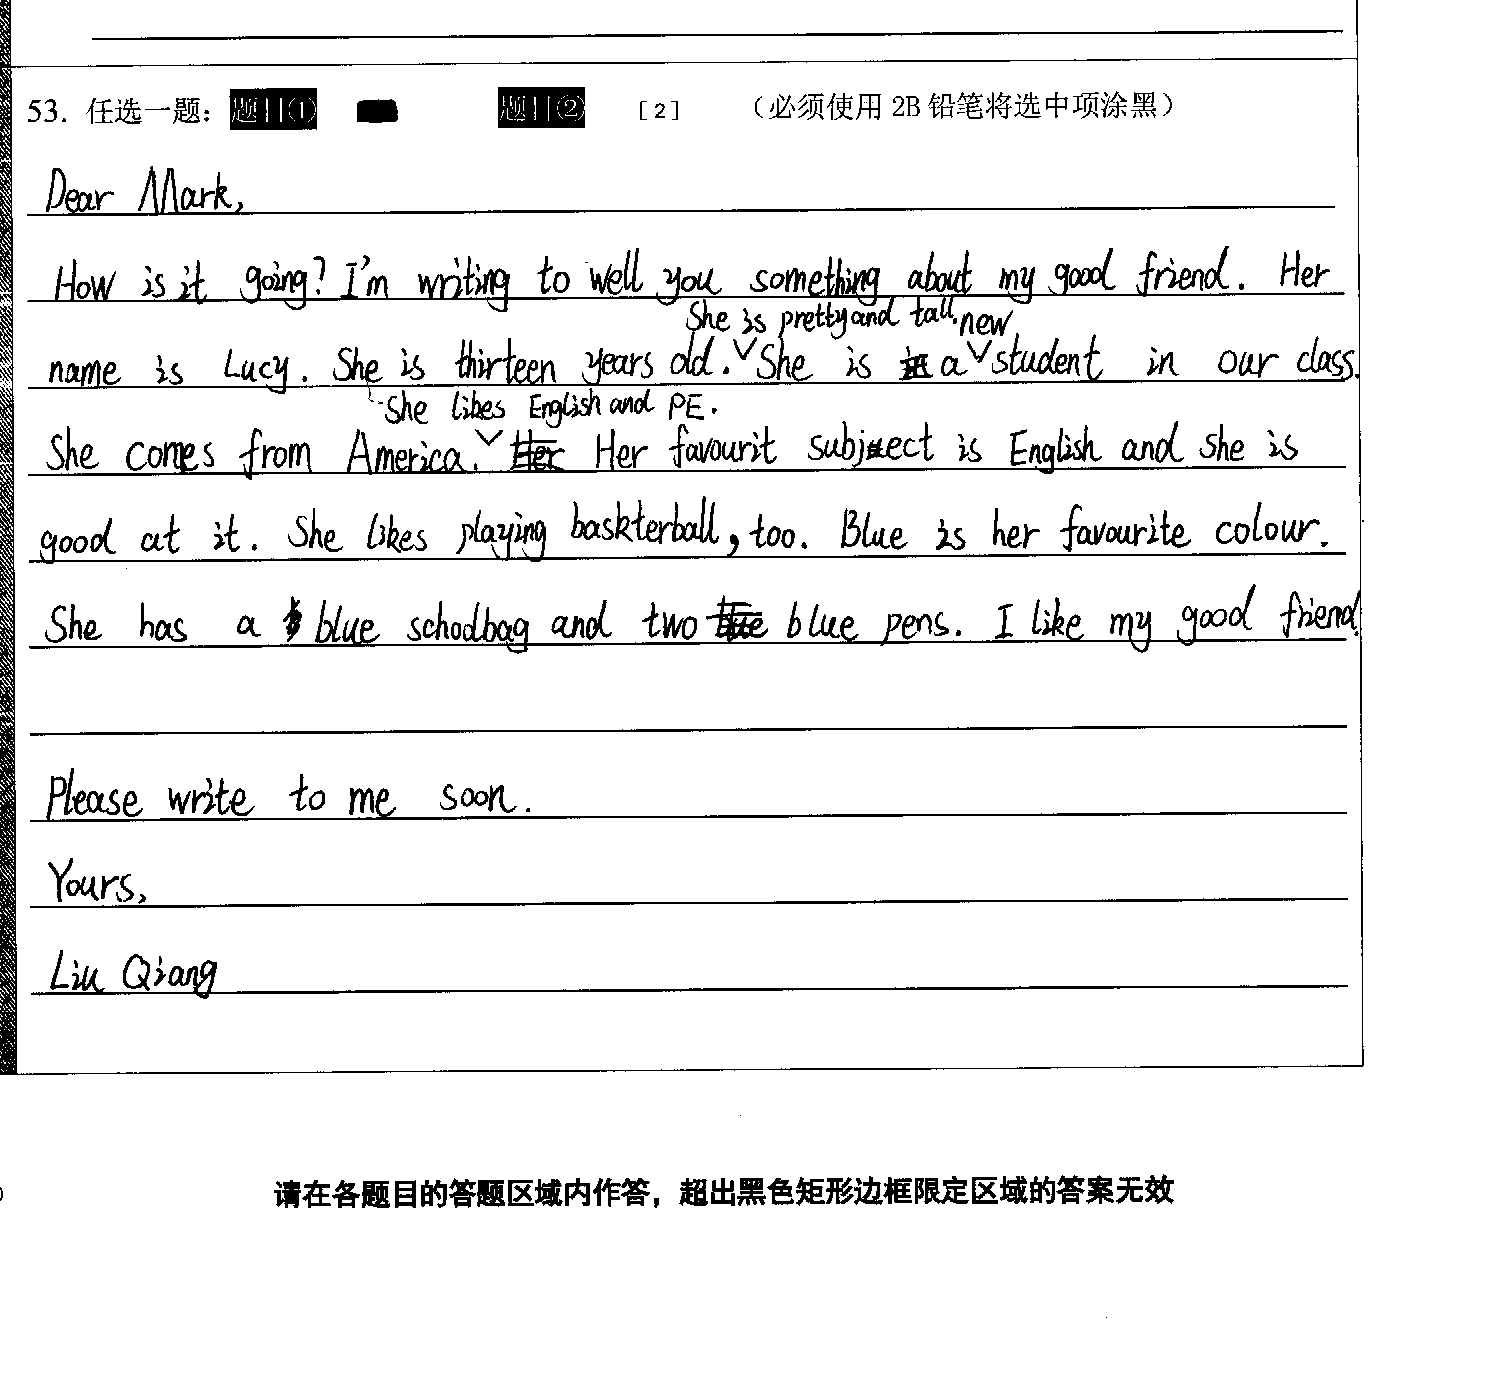 53. 任选一题： 题目① 题目② [2] （必须使用 2B 铅笔将选中项涂黑）
Dear Mark,
How is it going? I'm writing to well you something about my good friend. Her
She is pretty and tall. new
name is Lucy. She is thirteen years old. She is a student in our class.
She likes English and PE.
She comes from America. Her Her favourit subject is English and she is
good at it. She likes playing baskterball, too. Blue is her favourite colour.
She has a blue schoolbag and two blue pens. I like my good friend.
Please write to me soon.
Yours,
Liu Qiang
请在各题目的答题区域内作答，超出黑色矩形边框限定区域的答案无效